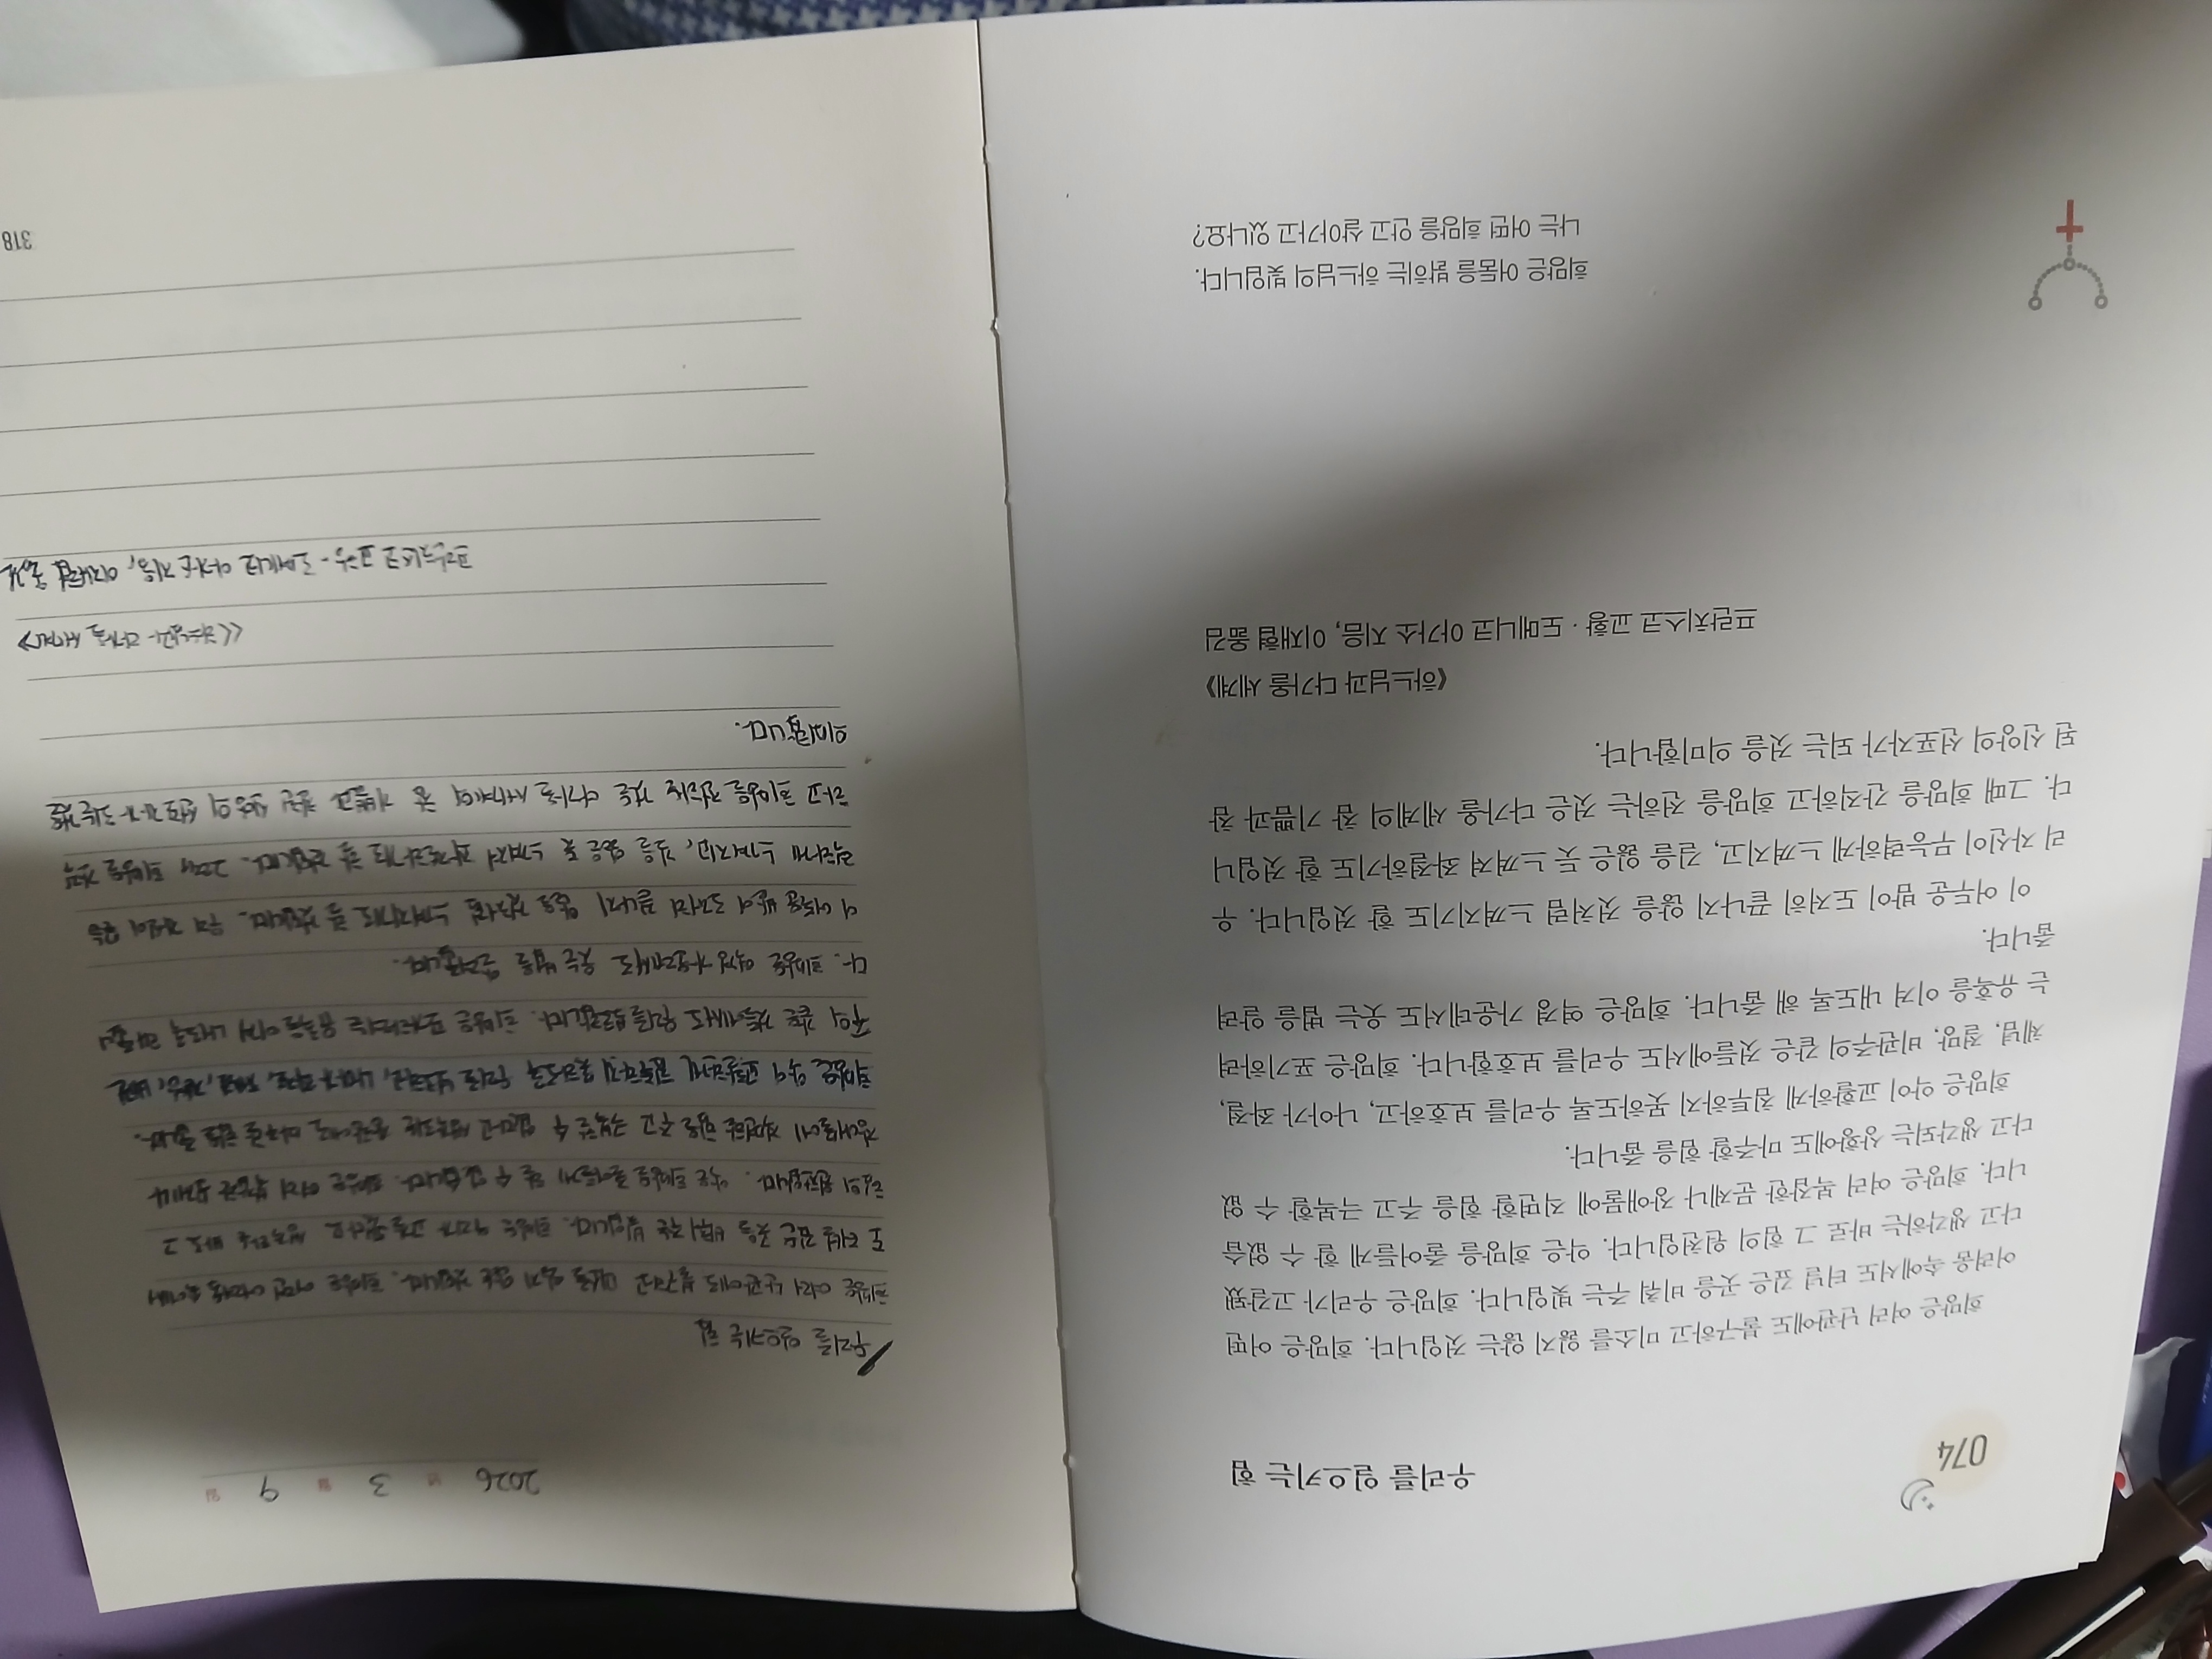 074
우리를 일으키는 힘
희망은 여러 난관에도 불구하고 미소를 잃지 않는 것입니다. 희망은 어떤
어려움 속에서도 터널 깊은 곳을 비춰 주는 빛입니다. 희망은 우리가 고갈됐
다고 생각하는 바로 그 힘의 원천입니다. 악은 희망을 줄어들게 할 수 없습
니다. 희망은 여러 복잡한 문제나 장애물에 직면할 힘을 주고 극복할 수 없
다고 생각되는 상황에도 마주할 힘을 줍니다.
희망은 악이 교활하게 침투하지 못하도록 우리를 보호하고, 나아가 좌절,
체념, 절망, 비관주의 같은 것들에서도 우리를 보호합니다. 희망은 포기하려
는 유혹을 이겨 내도록 해 줍니다. 희망은 역경 가운데서도 웃는 법을 알려
줍니다.
이 어두운 밤이 도저히 끝나지 않을 것처럼 느껴지기도 할 것입니다. 우
리 자신이 무능력하게 느껴지고, 길을 잃은 듯 느껴져 좌절하기도 할 것입니
다. 그때 희망을 간직하고 희망을 전하는 것은 다가올 세계의 참 기쁨과 참
된 신앙의 선포자가 되는 것을 의미합니다.
《하느님과 다가올 세계》
프란치스코 교황 · 도메니코 아가소 지음, 이재협 옮김
희망은 어둠을 밝히는 하느님의 빛입니다.
나는 어떤 희망을 안고 살아가고 있나요?
2026 년 3 월 9 일
우리를 일으키는 힘
희망은 여러 난관에도 불구하고 미소를 잃지 않는 것입니다. 희망은 어떤 어려움 속에서
도 터널 깊은 곳을 비춰 주는 빛입니다. 희망은 우리가 고갈됐다고 생각하는 바로 그
힘의 원천입니다. 악은 희망을 줄어들게 할 수 없습니다. 희망은 여러 복잡한 문제나
장애물에 직면할 힘을 주고 극복할 수 없다고 생각되는 상황에도 마주할 힘을 줍니다.
희망은 악이 교활하게 침투하지 못하도록 우리를 보호하고, 나아가 좌절, 체념, 절망, 비관
주의 같은 것들에서도 우리를 보호합니다. 희망은 포기하려는 유혹을 이겨 내도록 해 줍니
다. 희망은 역경 가운데서도 웃는 법을 알려줍니다.
이 어두운 밤이 도저히 끝나지 않을 것처럼 느껴지기도 할 것입니다. 우리 자신이 무능
력하게 느껴지고, 길을 잃은 듯 느껴져 좌절하기도 할 것입니다. 그때 희망을 간직
하고 희망을 전하는 것은 다가올 세계의 참 기쁨과 참된 신앙의 선포자가 되는 것을
의미합니다.
《하느님과 다가올 세계》
프란치스코 교황 · 도메니코 아가소 지음, 이재협 옮김
318